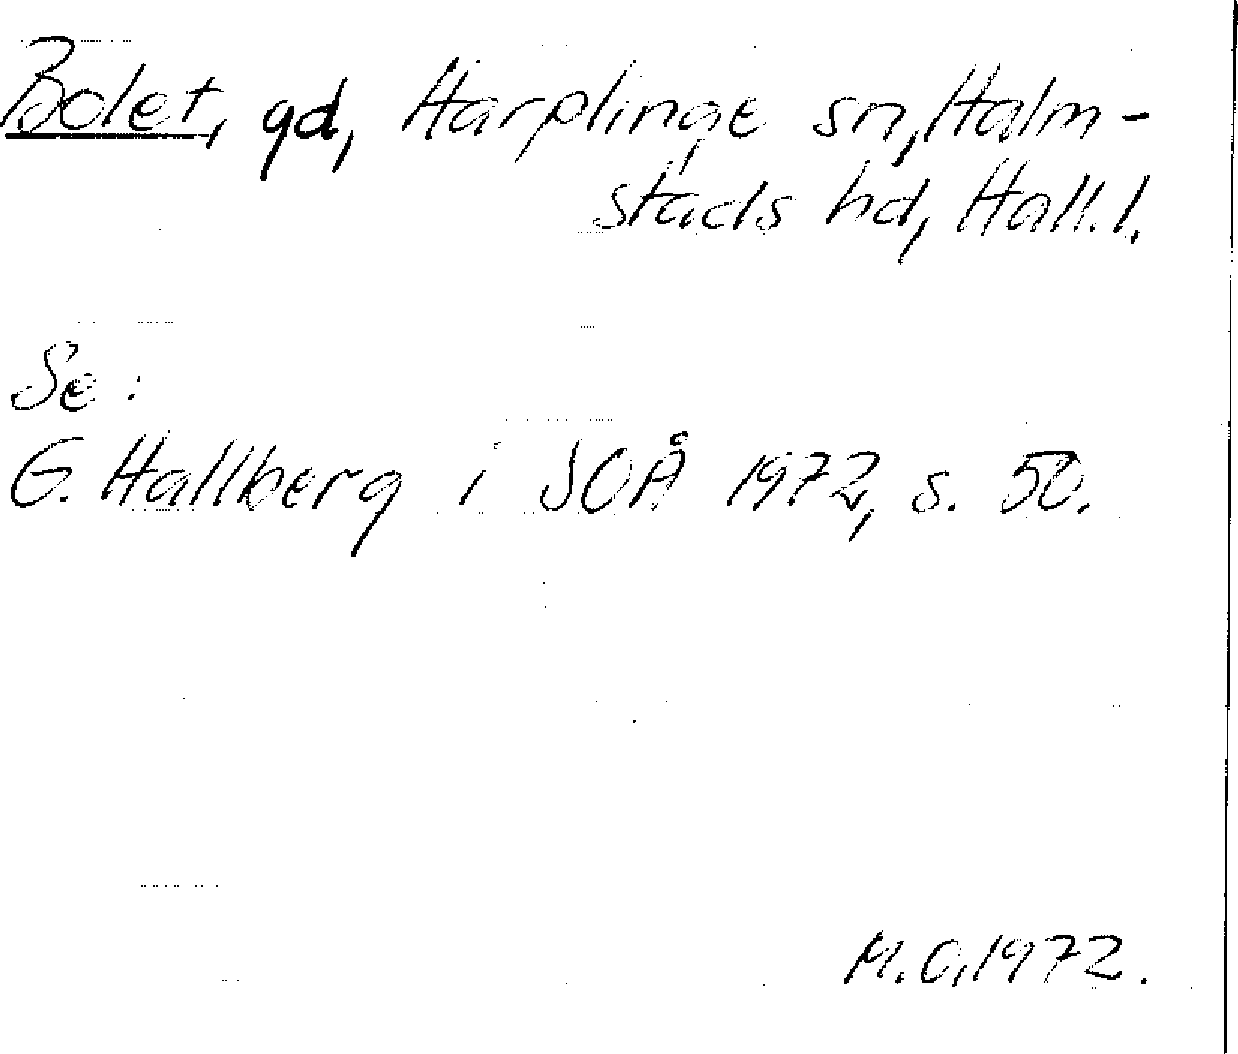 Bolet, gd, Harplinge sn, Halm-
stads hd, Hall. l.
Se:
G. Hallberg i SOÅ 1972, s. 50.
M.O. 1972.